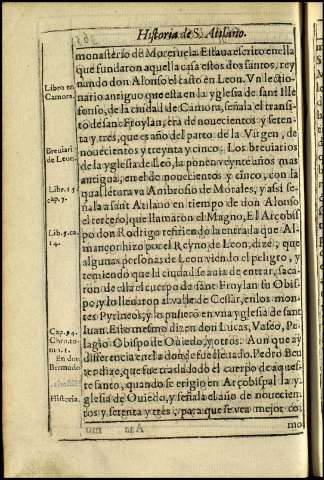 Historia de S. Atilano.
monasterio de Moreruela. Estaua escrito en ella
que fundaron aquella casa estos dos santos, rey
nando don Alonso el casto en Leon. Vn lectio-
Libro en Çamora.
nario antiguo que esta en la yglesia de sant Ille
fonso, de la ciudad de Çamora, señala el transi-
to de sant Froylan, era de nouecientos y seten-
ta y tres, que es año del parto de la Virgen, de
nouecientos y treynta y cinco. Los Breuiarios
Breuiari de Leon.
de la yglesia de Leō, la ponen veynte años mas
antigua, en el de nouecientos y cinco, con la
Lib. 15. cap. 7.
qual se tura va Ambrosio de Morales, y assi se-
ñala a sant Atilano en tiempo de don Alonso
el tercero, que llamaron el Magno. El Arçobis
Lib. 5. ca. 14.
po don Rodrigo refiriendo la entrada que Al-
mançor hizo por el Reyno de Leon, dize, que
algunas personas de Leon viendo el peligro, y
temiendo que la ciudad se auia de entrar, saca-
ron de ella el cuerpo de sant Froylan su Obis-
po, y lo lleuaron al valle de Cessar, en los mon-
tes Pyrineos, y lo pusierō en vna yglesia de sant
Cap. 94.
Iuan. Esto mesmo dizen don Lucas, Vaseo, Pe-
Chro. to-
mo. 1.
lagio Obispo de Ouiedo, y otros. Aunque ay
En don
diferencia en la donde fue lleuado. Pedro Beu
Bermudo
ter dize, que fue trasladado el cuerpo de aques-
te santo, quando se erigio en Arçobispal la y-
Historia.
glesia de Ouiedo, y señala el año de nouecien-
tos y setenta y tres, para que se vea mejor co
mo